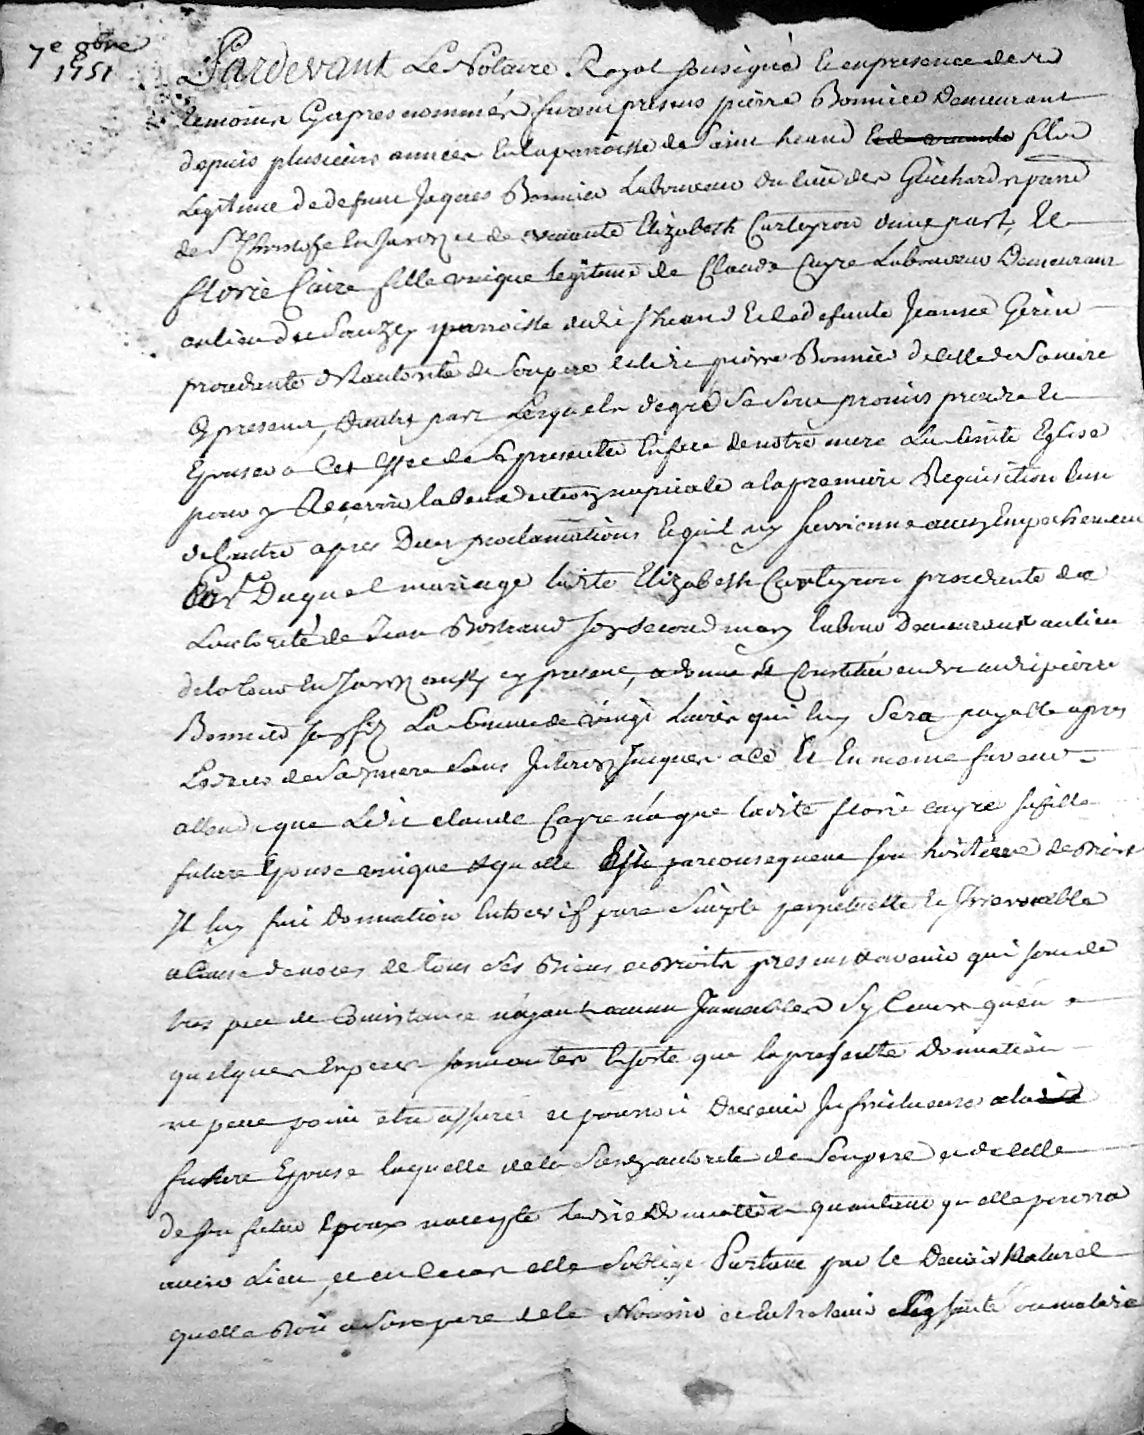 7e 8bre
1751
Pardevant Le Notaire Royal soussigné et en presence des
temoins Cyapres nommés furent presens pierre Bonnier Demeurant
depuis plusieurs années en la parroisse de saint heand fils
Legitime de defunt Jaques Bonnier Laboureur du lieu des Guichards parr
de St Christofle en Jarez et de vivante Elizabeth Curleyron d'une part, Et
florie Caire fille unique legitime de Claude Cayre Laboureur Demeurant
au lieu de parroisse dudit st heand et de defunte Jeanne Gerin
procedante de l'autorité de son pere et ledit pierre Bonnier de celle de sa mere
Cy presens, d'autre part Lesquels de gré se sont promis prendre et
Epouser a Cet effet de se presenter en face de notre mere La sainte Eglise
pour y Recevoir la benediction nupciale a la premiere Requisition l'un
de l'autre apres Dues proclamations Et quil ny survienne aucun Empechement
En fr. Duquel mariage ladite Elizabeth Curleyron procedante de
L'autorité de Jean Bertrand son second mary Labour Demeurant au lieu
de la en Jarez aussy cy present, a donné et Constitué en dot audit pierre
Bonnier son fils La somme de vingt livres qui luy sera payable apres
Le deces de sa mere sans Interets Jusques a ce Et En meme faveur
attendu que Ledit claude Cayre n'a que ladite florie cayre sa fille
future Epouse unique et qu'elle Est par consequent son heritiere de droit
Il luy fait Donnation entre vif pure simple perpetuelle et Irrevocable
a Cause de noces de tous ses Biens et droits presens et avenir qui sont de
tres peu de Consistance n'ayant aucun Immeubles sy Ce n'est qu'en
quelques En sorte que la presente Donnation
ne peut point etre assurée et pourroit Devenir Infructueuse a la
future Epouse laquelle de la susd autorité de son pere et de celle
de son futur Epoux n'accepte ladite Donnation qu'autant qu'elle pourra
avoir Lieu, et en ce cas elle s'oblige Portant par le Devoir Naturel
quelle doit a son pere de le Nourrir et Entretenir en santé ou maladie